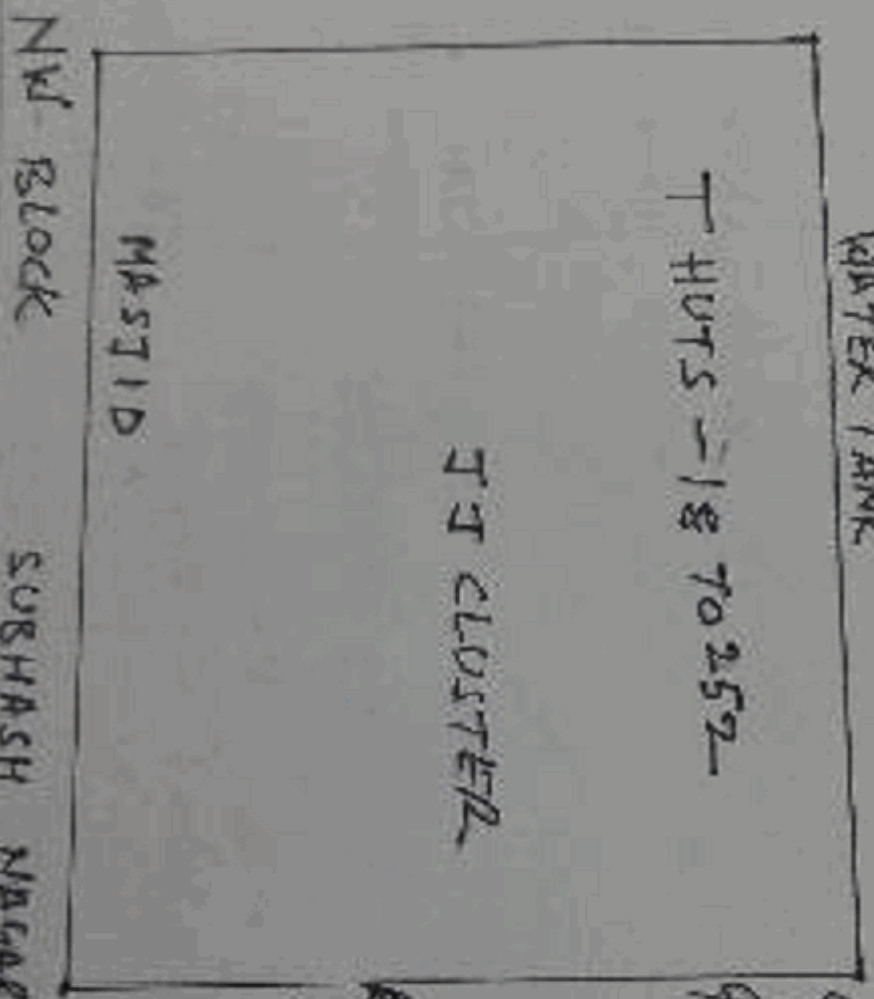 WATER TANK
T HUTS - 18 TO 252
JJ CLUSTER
MASJID
NW BLOCK SUBHASH NAGAR